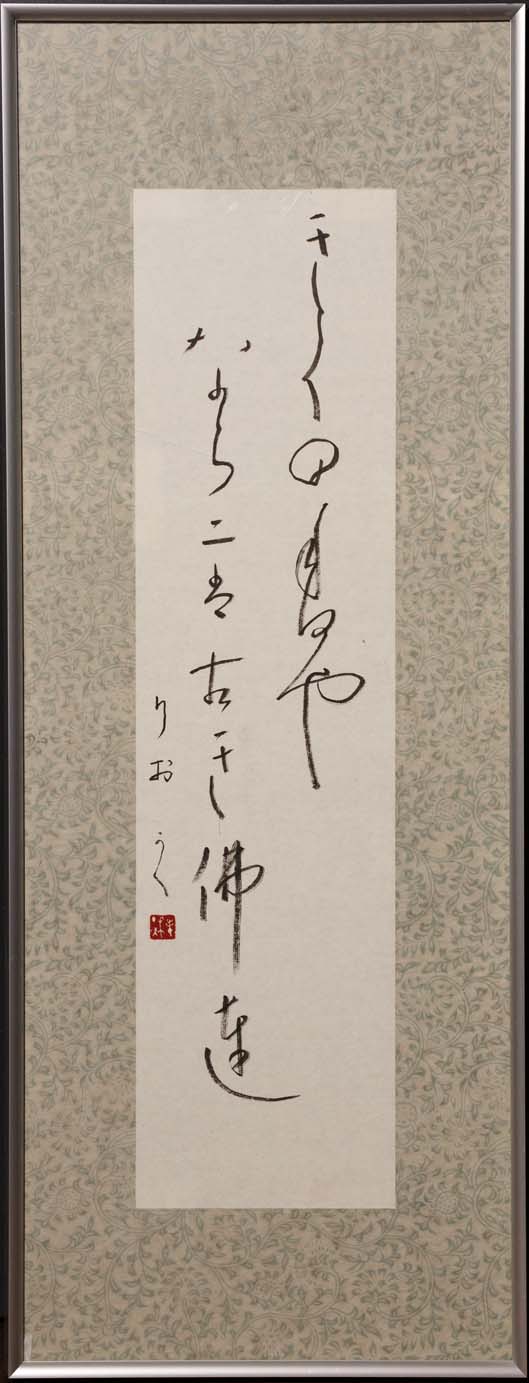 きくの香や
なら二は古き佛達
りお